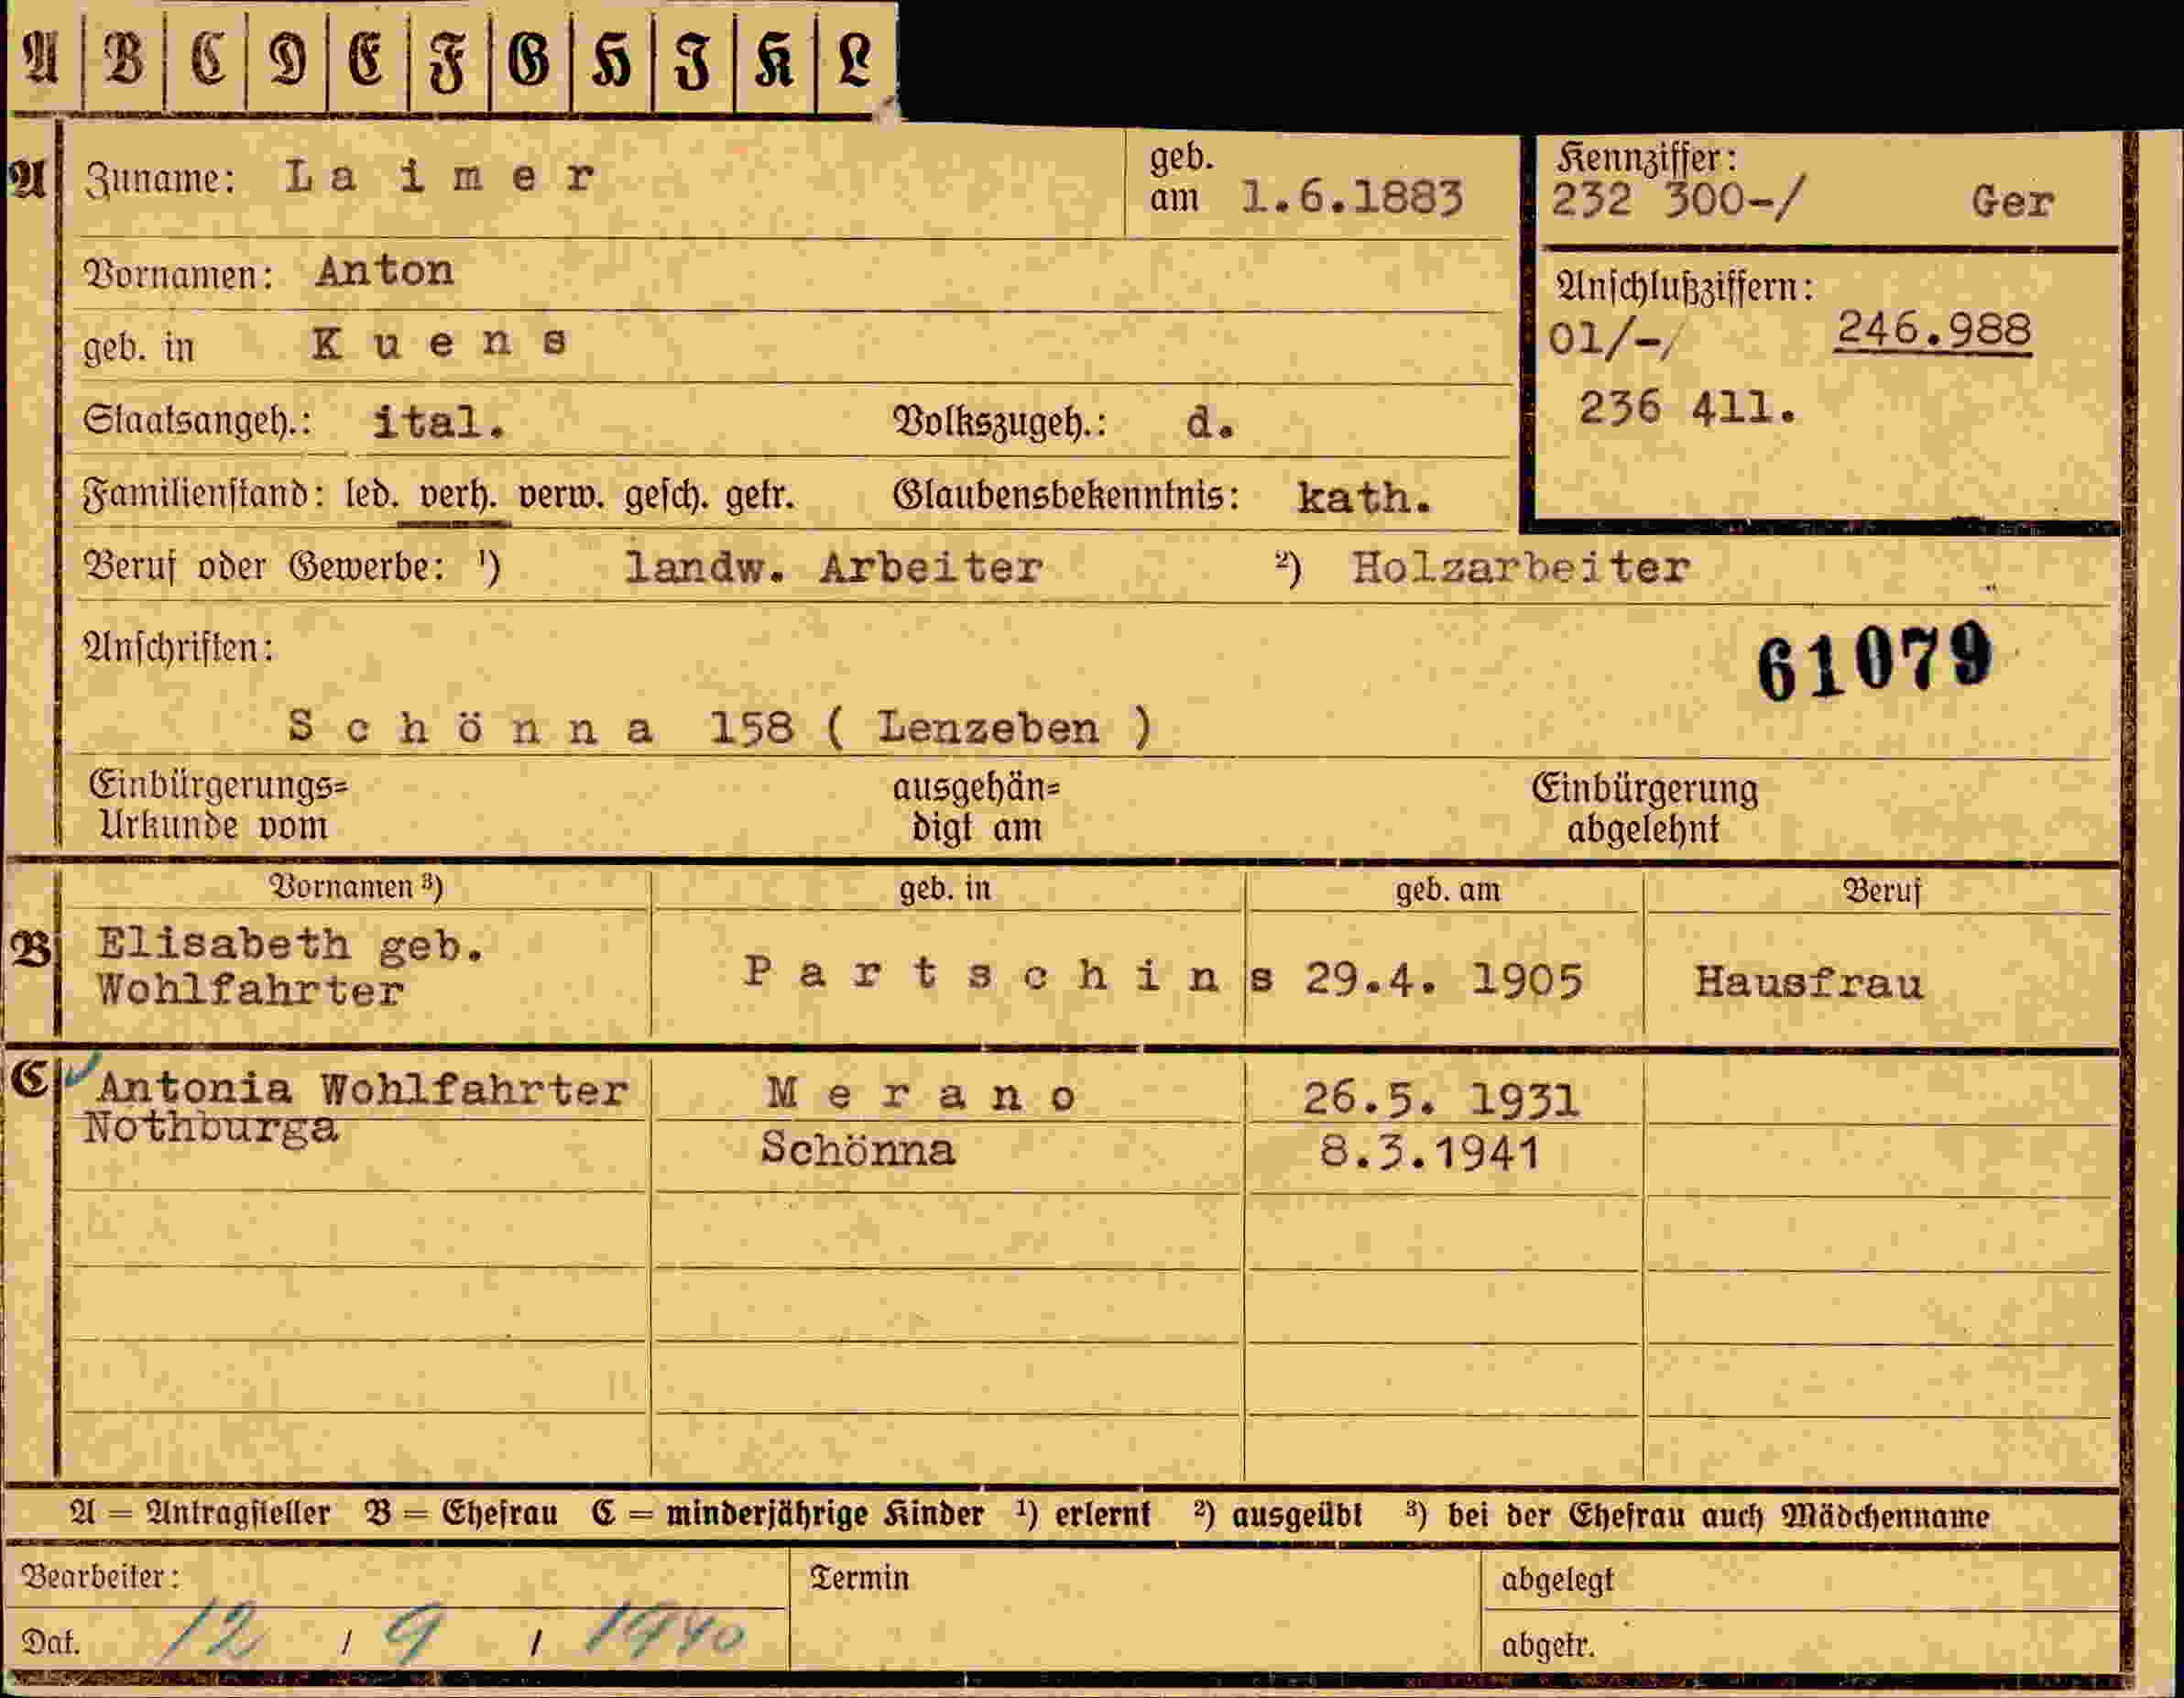 A B C D E F G H I K L
A Zuname: Laimer geb. am 1.6.1883
Kennziffer: 232 300-/ Ger
Vornamen: Anton
Anschlußziffern:
01/-/ 246.988
236 411.
geb. in Kuens
Staatsangeh.: ital. Volkszugeh.: d.
Familienstand: led. verh. verw. gesch. getr. Glaubensbekenntnis: kath.
Beruf oder Gewerbe: ¹) landw. Arbeiter ²) Holzarbeiter
Anschriften:
61079
Schönna 158 ( Lenzeben )
Einbürgerungs=
Urkunde vom
ausgehän=
digt am
Einbürgerung
abgelehnt
Vornamen ³) geb. in geb. am Beruf
B Elisabeth geb.
Wohlfahrter Partschins 29.4. 1905 Hausfrau
C Antonia Wohlfahrter Merano 26.5. 1931
Nothburga Schönna 8.3.1941
A = Antragsteller B = Ehefrau C = minderjährige Kinder ¹) erlernt ²) ausgeübt ³) bei der Ehefrau auch Mädchenname
Bearbeiter: Termin abgelegt
Dat. 12 / 9 / 1940 abgetr.